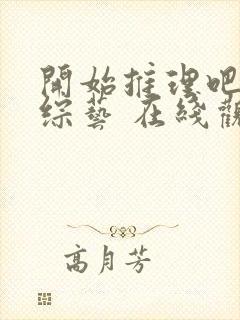 開始推理吧
綜藝 在綫觀
高月芳